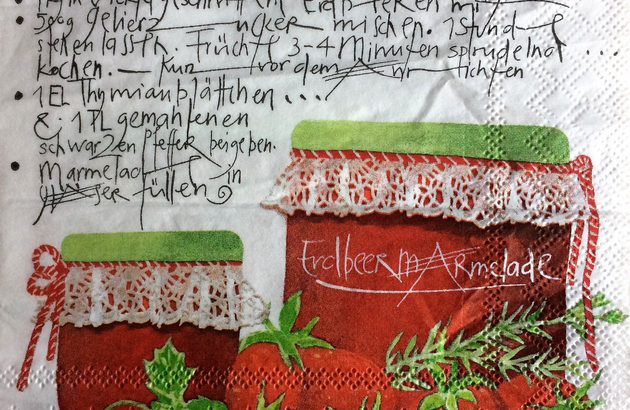 geschnittene Erdbeeren mit
• 500g Gelierzucker mischen. 1 Stunde
stehen lassen. Früchte 3-4 Minuten sprudelnd ...
kochen. — Kurz vor dem Anrichten
• 1 EL Thymianblättchen ...
& 1 TL gemahlenen
schwarzen Pfeffer beigeben.
• Marmelade in
Gläser füllen
Erdbeermarmelade